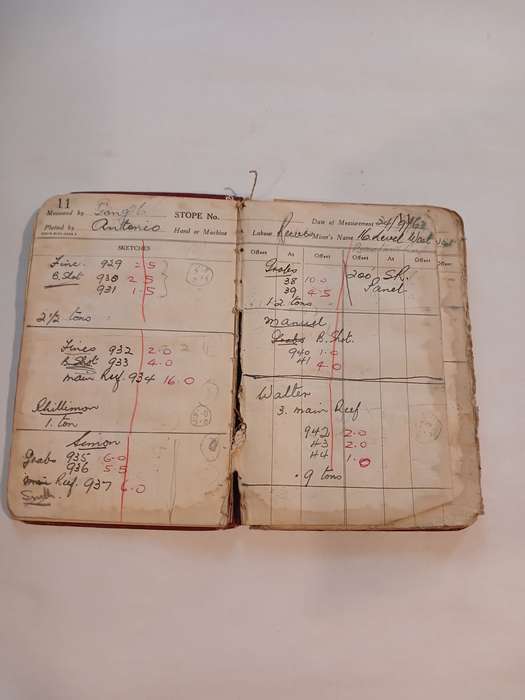 11
Measured by
STOPE No.
Plotted by Antonio Hand or Machine
SKETCHES
Fines 929 2.5
B. Slot 930 2.5
931 1.5
2 1/2 tons
Fines 932 2.0
B. Slot 933 4.0
main Reef 934 16.0
1 ton
Simon
Grabs 935 6.0
936 5.5
main Reef 937 6.0
Date of Measurement
Labour Reeves Miner's Name 16 Level West
Offset At Offset Offset At Offset
Grabs
38 10.0
39 4.5
12 tons
200' SR.
Panel
Manuel
Grabs B. Slot.
940 1.0
41 4.0
Walter
3. main Reef
942 2.0
43 2.0
44 1.0
9 tons